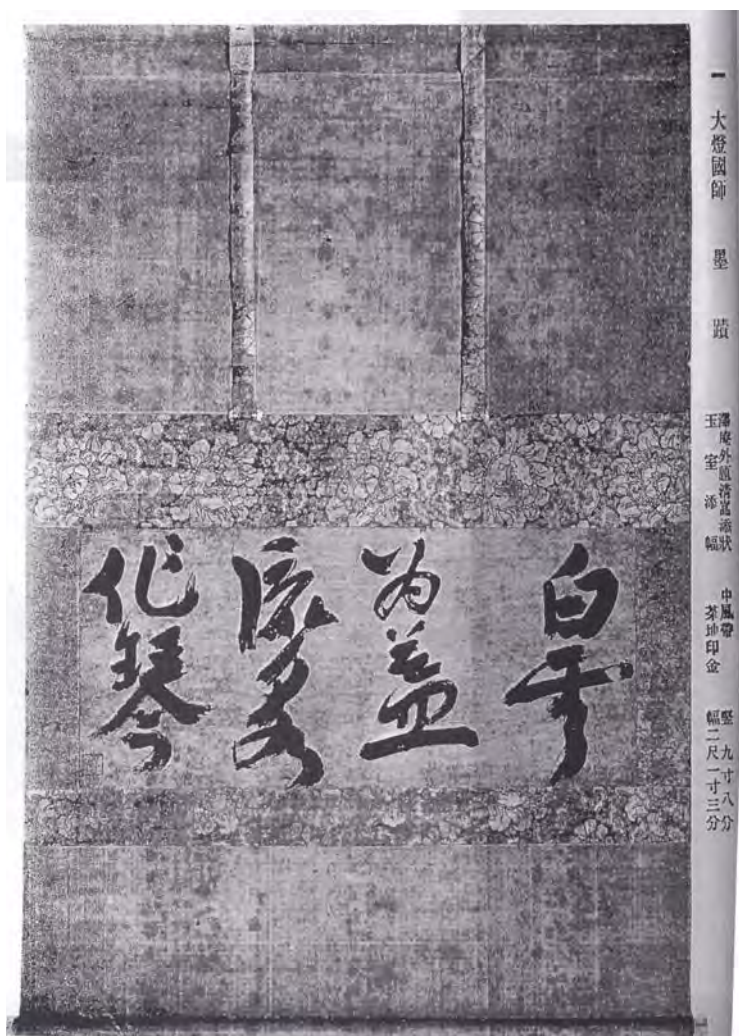 一 大燈國師 墨蹟
澤庵外題清巖添狀
玉室添幅
中風帶
茶地印金
竪九寸八分
幅二尺一寸三分
白雲
為蓋
流泉
作琴